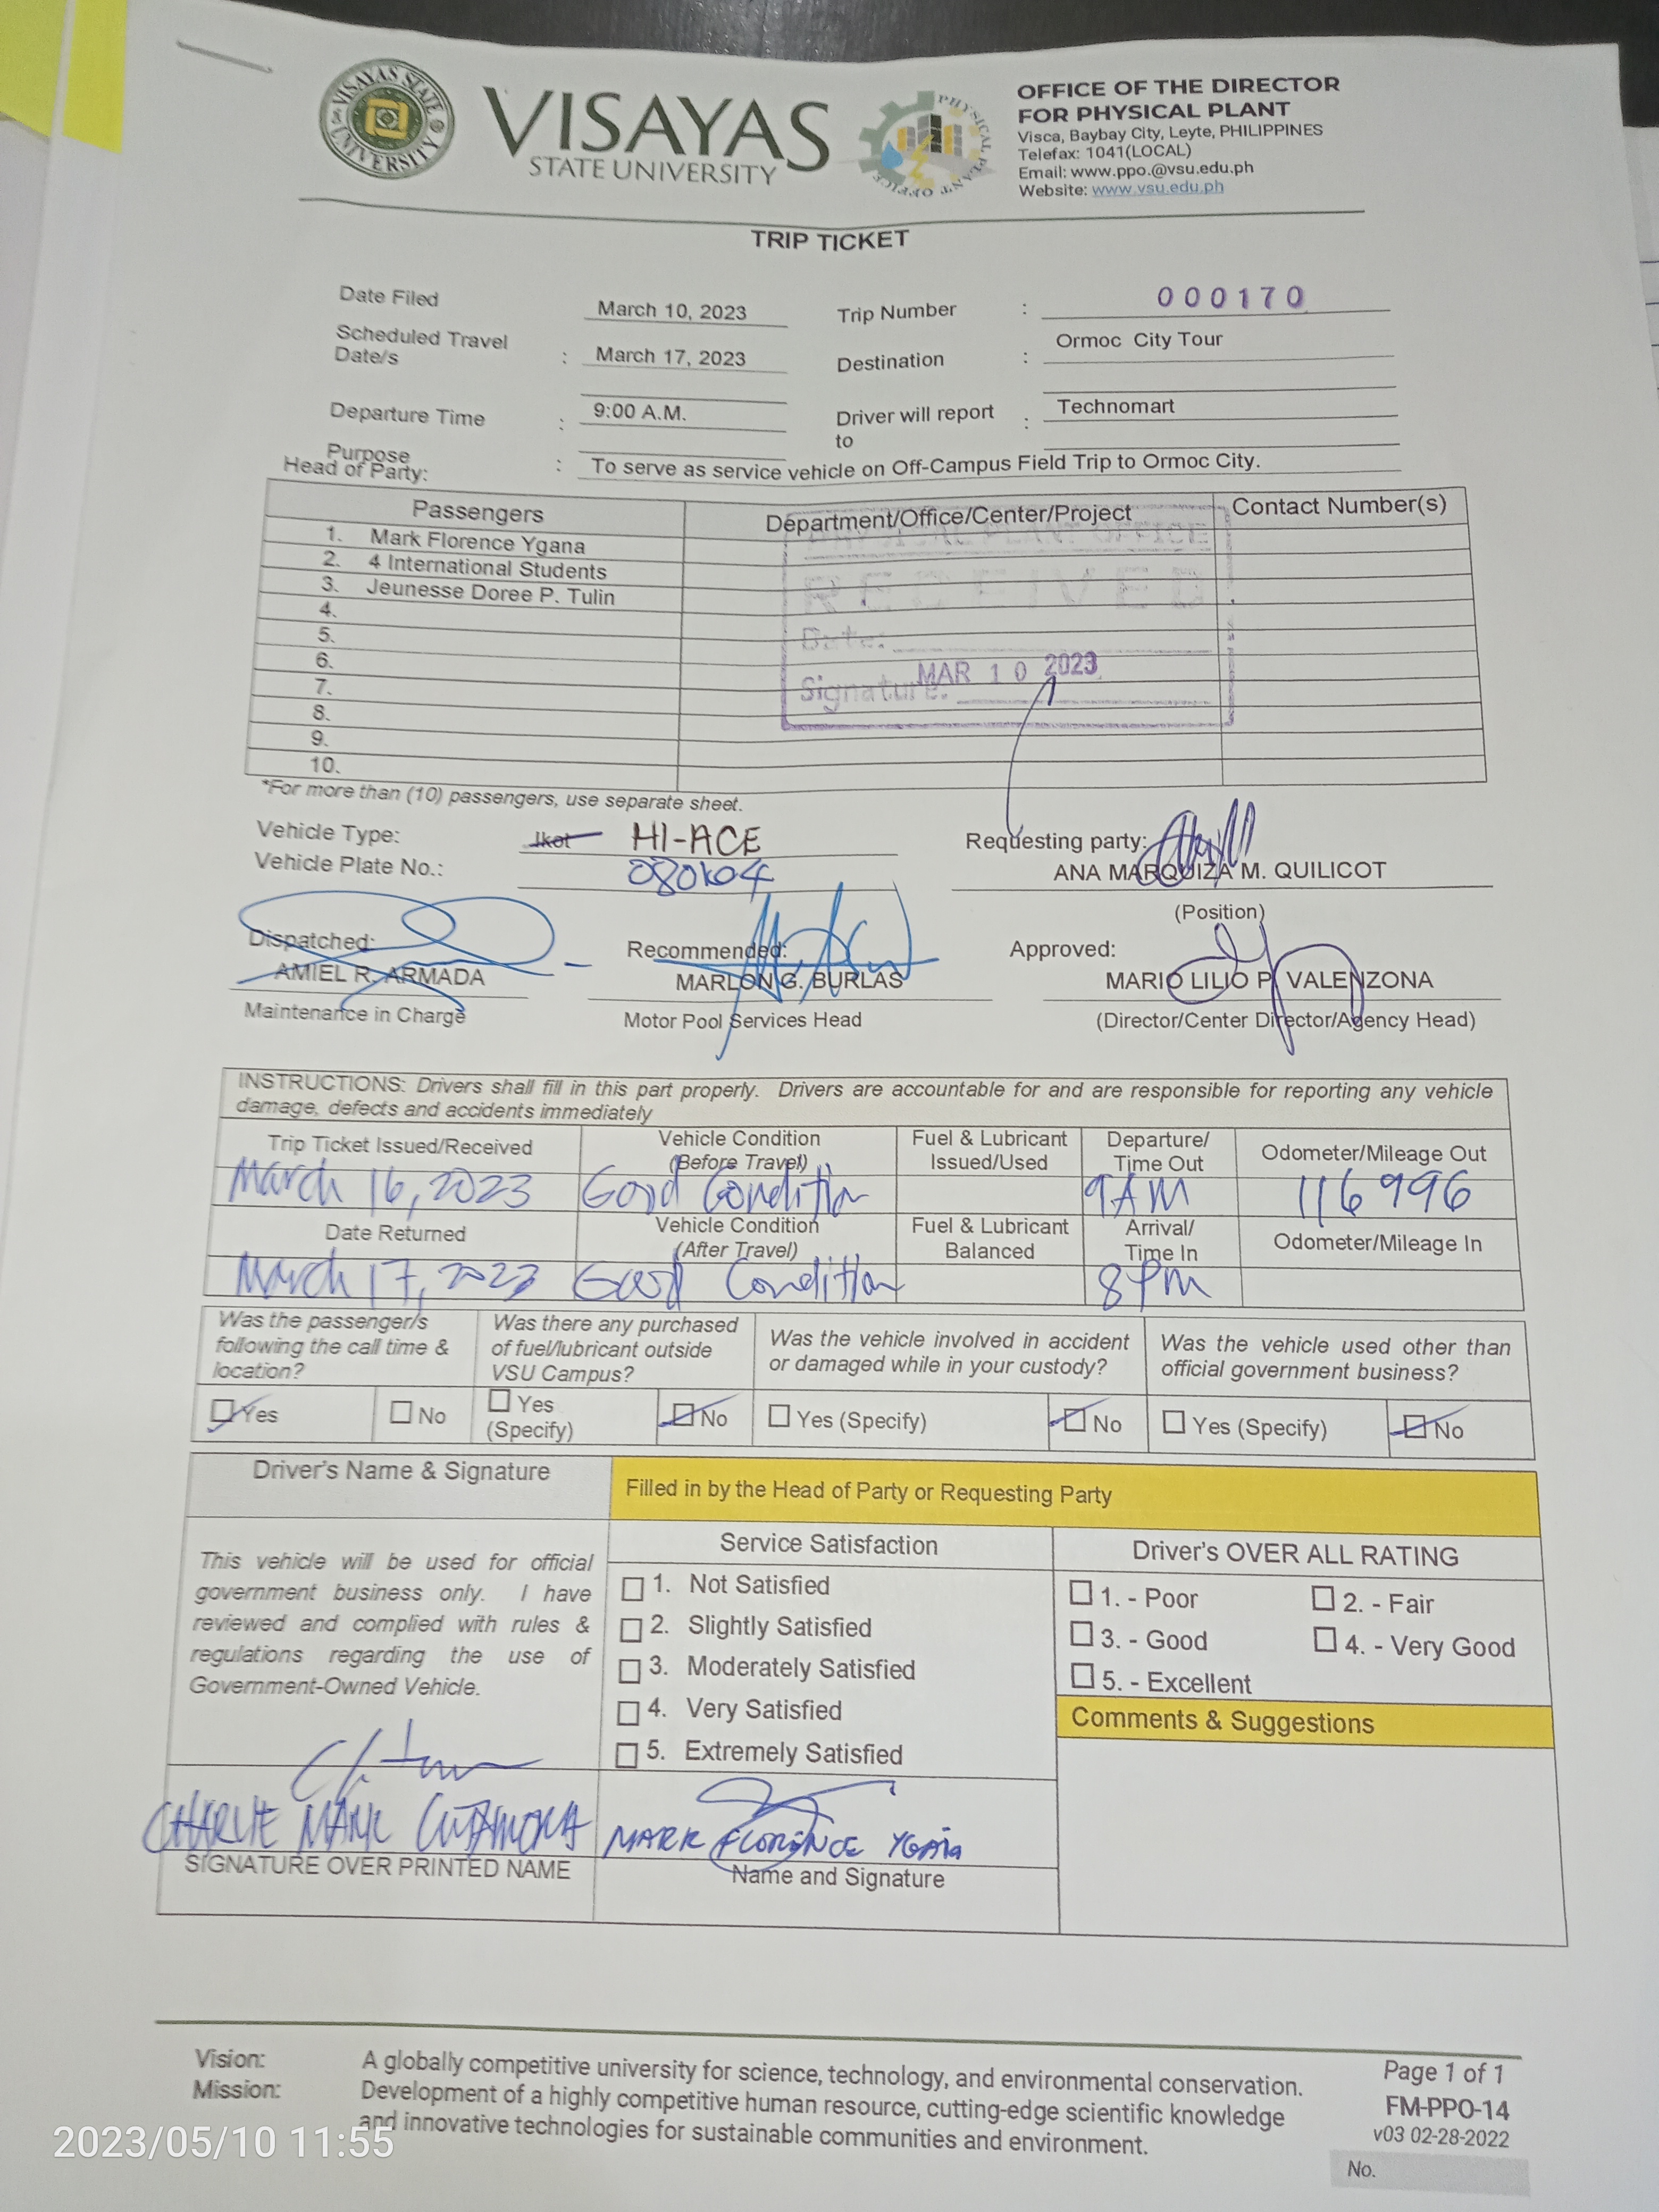 VISAYAS STATE UNIVERSITY
VISAYAS
STATE UNIVERSITY
PHYSICAL PLANT OFFICE
OFFICE OF THE DIRECTOR
FOR PHYSICAL PLANT
Visca, Baybay City, Leyte, PHILIPPINES
Telefax: 1041(LOCAL)
Email: www.ppo.@vsu.edu.ph
Website: www.vsu.edu.ph
TRIP TICKET
Date Filed March 10, 2023 Trip Number : 000170
Scheduled Travel Date/s : March 17, 2023 Destination : Ormoc City Tour
Departure Time : 9:00 A.M. Driver will report to : Technomart
Purpose : To serve as service vehicle on Off-Campus Field Trip to Ormoc City.
Head of Party:
Passengers Department/Office/Center/Project Contact Number(s)
1. Mark Florence Ygana
2. 4 International Students
3. Jeunesse Doree P. Tulin
4.
5.
6.
7.
8.
9.
10.
PHYSICAL PLANT OFFICE
RECEIVED
Date:
MAR 10 2023
Signature:
*For more than (10) passengers, use separate sheet.
Vehicle Type: Ikot HI-ACE Requesting party:
Vehicle Plate No.: ANA MARQUIZA M. QUILICOT
(Position)
Dispatched: Recommended: Approved:
AMIEL R. ARMADA MARLON G. BURLAS MARIO LILIO P. VALENZONA
Maintenance in Charge Motor Pool Services Head (Director/Center Director/Agency Head)
INSTRUCTIONS: Drivers shall fill in this part properly. Drivers are accountable for and are responsible for reporting any vehicle
damage, defects and accidents immediately
Trip Ticket Issued/Received Vehicle Condition (Before Travel) Fuel & Lubricant Issued/Used Departure/ Time Out Odometer/Mileage Out
March 16, 2023 Good Condition 9AM 116996
Date Returned Vehicle Condition (After Travel) Fuel & Lubricant Balanced Arrival/ Time In Odometer/Mileage In
March 17, 2023 Good Condition 8PM
Was the passenger/s following the call time & location? Was there any purchased of fuel/lubricant outside VSU Campus? Was the vehicle involved in accident or damaged while in your custody? Was the vehicle used other than official government business?
Yes No Yes (Specify) No Yes (Specify) No Yes (Specify) No
Driver's Name & Signature Filled in by the Head of Party or Requesting Party
Service Satisfaction Driver's OVER ALL RATING
This vehicle will be used for official
government business only. I have
reviewed and complied with rules &
regulations regarding the use of
Government-Owned Vehicle.
1. Not Satisfied
2. Slightly Satisfied
3. Moderately Satisfied
4. Very Satisfied
5. Extremely Satisfied
1. - Poor 2. - Fair
3. - Good 4. - Very Good
5. - Excellent
Comments & Suggestions
CHARLIE MARK MARK FLORENCE YGANA
SIGNATURE OVER PRINTED NAME Name and Signature
Vision: A globally competitive university for science, technology, and environmental conservation.
Mission: Development of a highly competitive human resource, cutting-edge scientific knowledge
and innovative technologies for sustainable communities and environment.
Page 1 of 1
FM-PPO-14
v03 02-28-2022
No.
2023/05/10 11:55